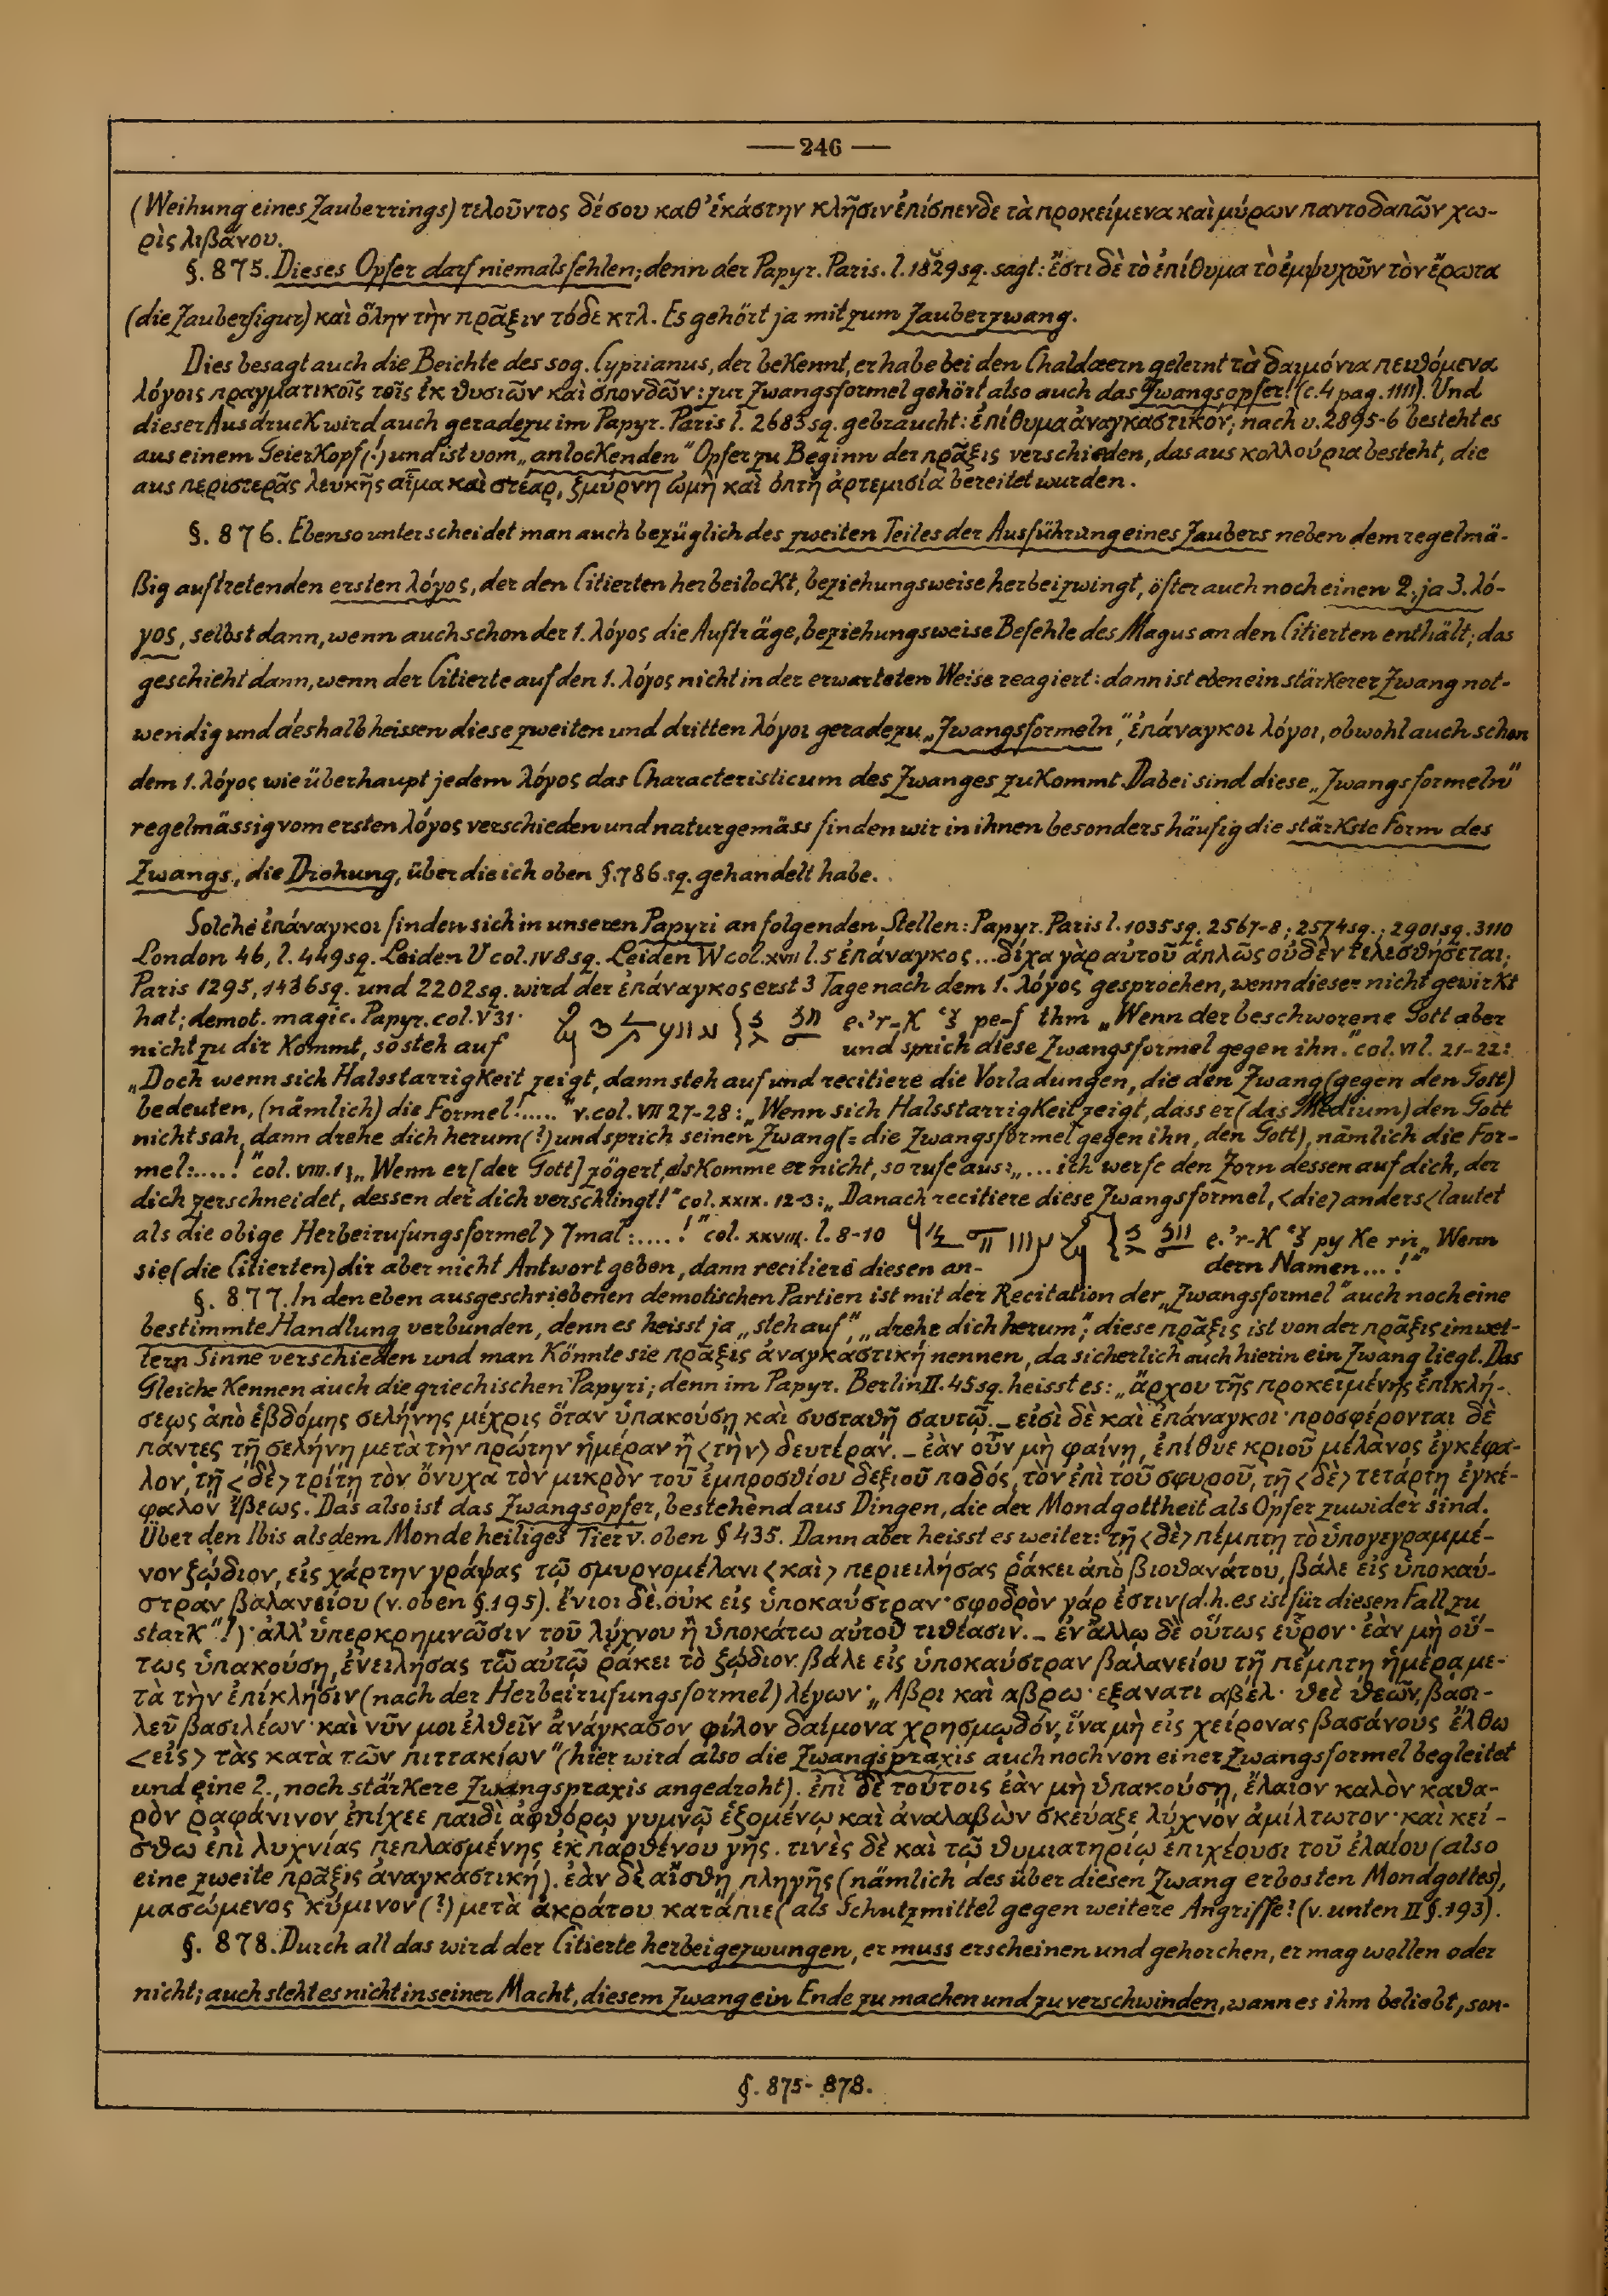 — 246 —
(Weihung eines Zauberrings) τελοῦντος δέ σου καθ' ἑκάστην κλῆσιν ἐπίσπενδε τὰ προκείμενα καὶ μύρων παντοδαπῶν χω-
ρὶς λιβάνου.
§. 875. Dieses Opfer darf niemals fehlen; denn der Papyr. Paris. l. 1829 sq. sagt: ἔστι δὲ τὸ ἐπίθυμα τὸ ἐμψυχοῦν τὸν ἔρωτα
(die Zauberfigur) καὶ ὅλην τὴν πρᾶξιν τόδε κτλ. Es gehört ja mit zum Zauberzwang.
Dies besagt auch die Beichte des sog. Cyprianus, der bekennt, er habe bei den Chaldaeern gelernt τὰ δαιμόνια πειθόμενα
λόγοις πραγματικοῖς τοῖς ἐκ θυσιῶν καὶ σπονδῶν: zur Zwangsformel gehört also auch das Zwangsopfer! (c. 4 pag. 1111). Und
dieser Ausdruck wird auch geradezu im Papyr. Paris l. 2683 sq. gebraucht: ἐπίθυμα ἀναγκαστικόν; nach v. 2895-6 besteht es
aus einem Geierkopf (!) und ist vom „anlockenden" Opfer zu Beginn der πρᾶξις verschieden, das aus κολλούρια besteht, die
aus περιστερᾶς λευκῆς αἷμα καὶ στέαρ, ζμύρνη ὠμὴ καὶ ὀπτὴ ἀρτεμισία bereitet wurden.
§. 876. Ebenso unterscheidet man auch bezüglich des zweiten Teiles der Ausführung eines Zaubers neben dem regelmä-
ßig auftretenden ersten λόγος, der den Citierten herbeilockt, beziehungsweise herbeizwingt, öfter auch noch einen 2., ja 3. λό-
γος, selbst dann, wenn auch schon der 1. λόγος die Aufträge, beziehungsweise Befehle des Magus an den Citierten enthält; das
geschieht dann, wenn der Citierte auf den 1. λόγος nicht in der erwarteten Weise reagiert: dann ist eben ein stärkerer Zwang not-
wendig und deshalb heissen diese zweiten und dritten λόγοι geradezu „Zwangsformeln", ἐπάναγκοι λόγοι, obwohl auch schon
dem 1. λόγος wie überhaupt jedem λόγος das Characteristicum des Zwanges zukommt. Dabei sind diese „Zwangsformeln"
regelmässig vom ersten λόγος verschieden und naturgemäss finden wir in ihnen besonders häufig die stärkste Form des
Zwangs, die Drohung, über die ich oben §. 786 sq. gehandelt habe.
Solche ἐπάναγκοι finden sich in unseren Papyri an folgenden Stellen: Papyr. Paris l. 1035 sq. 2567-8; 2574 sq.; 2901 sq. 3110
London 46, l. 449 sq. Leiden V col. IV 8 sq. Leiden W col. XVIII l. 5 ἐπάναγκος ... δίχα γὰρ αὐτοῦ ἁπλῶς οὐδὲν τελεσθήσεται;
Paris 1295, 1436 sq. und 2202 sq. wird der ἐπάναγκος erst 3 Tage nach dem 1. λόγος gesprochen, wenn dieser nicht gewirkt
hat; demot. magic. Papyr. col. V 31· e.'r-K pe-f thm „Wenn der beschworene Gott aber
nicht zu dir kommt, so steh auf und sprich diese Zwangsformel gegen ihn." col. VI l. 21-22:
„Doch wenn sich Halsstarrigkeit zeigt, dann steh auf und recitiere die Vorladungen, die den Zwang (gegen den Gott)
bedeuten, (nämlich) die Formel: ....." v. col. VII 27-28: „Wenn sich Halsstarrigkeit zeigt, dass er (das Medium) den Gott
nicht sah, dann drehe dich herum (!) und sprich seinen Zwang (= die Zwangsformel gegen ihn, den Gott), nämlich die For-
mel: ....!" col. VIII. 1: „Wenn er [der Gott] zögert, als komme er nicht, so rufe aus: „... ich werfe den Zorn dessen auf dich, der
dich zerschneidet, dessen der dich verschlingt!" col. XXIX. 12-3: „Danach recitiere diese Zwangsformel, <die> anders <lautet
als die obige Herbeirufungsformel> 7mal: ....!" col. XXVIII. l. 8-10 e.'r-K py Ke rn „Wenn
sie (die Citierten) dir aber nicht Antwort geben, dann recitiere diesen an- dern Namen ...!"
§. 877. In den eben ausgeschriebenen demotischen Partien ist mit der Recitation der „Zwangsformel" auch noch eine
bestimmte Handlung verbunden, denn es heisst ja „steh auf", „drehe dich herum"; diese πρᾶξις ist von der πρᾶξις im wei-
tern Sinne verschieden und man könnte sie πρᾶξις ἀναγκαστική nennen, da sicherlich auch hierin ein Zwang liegt. Das
Gleiche kennen auch die griechischen Papyri; denn im Papyr. Berlin II. 45 sq. heisst es: „ἄρχου τῆς προκειμένης ἐπικλή-
σεως ἀπὸ ἑβδόμης σελήνης μέχρις ὅταν ὑπακούσῃ καὶ συσταθῇ σαυτῷ. _ εἰσὶ δὲ καὶ ἐπάναγκοι· προσφέρονται δὲ
πάντες τῇ σελήνῃ μετὰ τὴν πρώτην ἡμέραν ἢ <τὴν> δευτέραν. _ ἐὰν οὖν μὴ φαίνῃ, ἐπίθυε κριοῦ μέλανος ἐγκέφα-
λον, τῇ <δὲ> τρίτῃ τὸν ὄνυχα τὸν μικρὸν τοῦ ἐμπροσθίου δεξιοῦ ποδός, τὸν ἐπὶ τοῦ σφυροῦ, τῇ <δὲ> τετάρτῃ ἐγκέ-
φαλον ἴβεως. Das also ist das Zwangsopfer, bestehend aus Dingen, die der Mondgottheit als Opfer zuwider sind.
Über den Ibis als dem Monde heiliges Tier v. oben § 435. Dann aber heisst es weiter: τῇ <δὲ> πέμπτῃ τὸ ὑπογεγραμμέ-
νον ζῴδιον, εἰς χάρτην γράψας τῷ σμυρνομέλανι <καὶ> περιειλήσας ῥάκει ἀπὸ βιοθανάτου, βάλε εἰς ὑποκαύ-
στραν βαλανείου (v. oben §. 195). ἔνιοι δὲ οὐκ εἰς ὑποκαύστραν· σφοδρὸν γάρ ἐστιν (d. h. es ist für diesen Fall zu
stark"!)· ἀλλ' ὑπερκρημνῶσιν τοῦ λύχνου ἢ ὑποκάτω αὐτοῦ τιθέασιν. _ ἐν ἄλλῳ δὲ οὕτως εὗρον· ἐὰν μὴ οὕ-
τως ὑπακούσῃ, ἐνειλήσας τῷ αὐτῷ ῥάκει τὸ ζῴδιον βάλε εἰς ὑποκαύστραν βαλανείου τῇ πέμπτῃ ἡμέρᾳ με-
τὰ τὴν ἐπίκλησιν (nach der Herbeirufungsformel) λέγων· „Αβρι καὶ αβρω· εξανατι αβελ· θεὲ θεῶν, βασι-
λεῦ βασιλέων· καὶ νῦν μοι ἐλθεῖν ἀνάγκασον φίλον δαίμονα χρησμῳδόν, ἵνα μὴ εἰς χείρονας βασάνους ἔλθω
<εἰς> τὰς κατὰ τῶν πιττακίων" (hier wird also die Zwangspraxis auch noch von einer Zwangsformel begleitet
und eine 2., noch stärkere Zwangspraxis angedroht). ἐπὶ δὲ τούτοις ἐὰν μὴ ὑπακούσῃ, ἔλαιον καλὸν καθα-
ρὸν ῥαφάνινον ἐπίχεε παιδὶ ἀφθόρῳ γυμνῷ ἑζομένῳ καὶ ἀναλαβὼν σκεύαζε λύχνον ἀμίλτωτον· καὶ κεί-
σθω ἐπὶ λυχνίας πεπλασμένης ἐκ παρθένου γῆς. τινὲς δὲ καὶ τῷ θυμιατηρίῳ ἐπιχέουσι τοῦ ἐλαίου (also
eine zweite πρᾶξις ἀναγκαστική). ἐὰν δὲ αἴσθῃ πληγῆς (nämlich des über diesen Zwang erbosten Mondgottes),
μασώμενος κύμινον (?) μετὰ ἀκράτου κατάπιε (als Schutzmittel gegen weitere Angriffe! (v. unten II §. 193).
§. 878. Durch all das wird der Citierte herbeigezwungen, er muss erscheinen und gehorchen, er mag wollen oder
nicht; auch steht es nicht in seiner Macht, diesem Zwang ein Ende zu machen und zu verschwinden, wann es ihm beliebt, son-
§. 875-878.